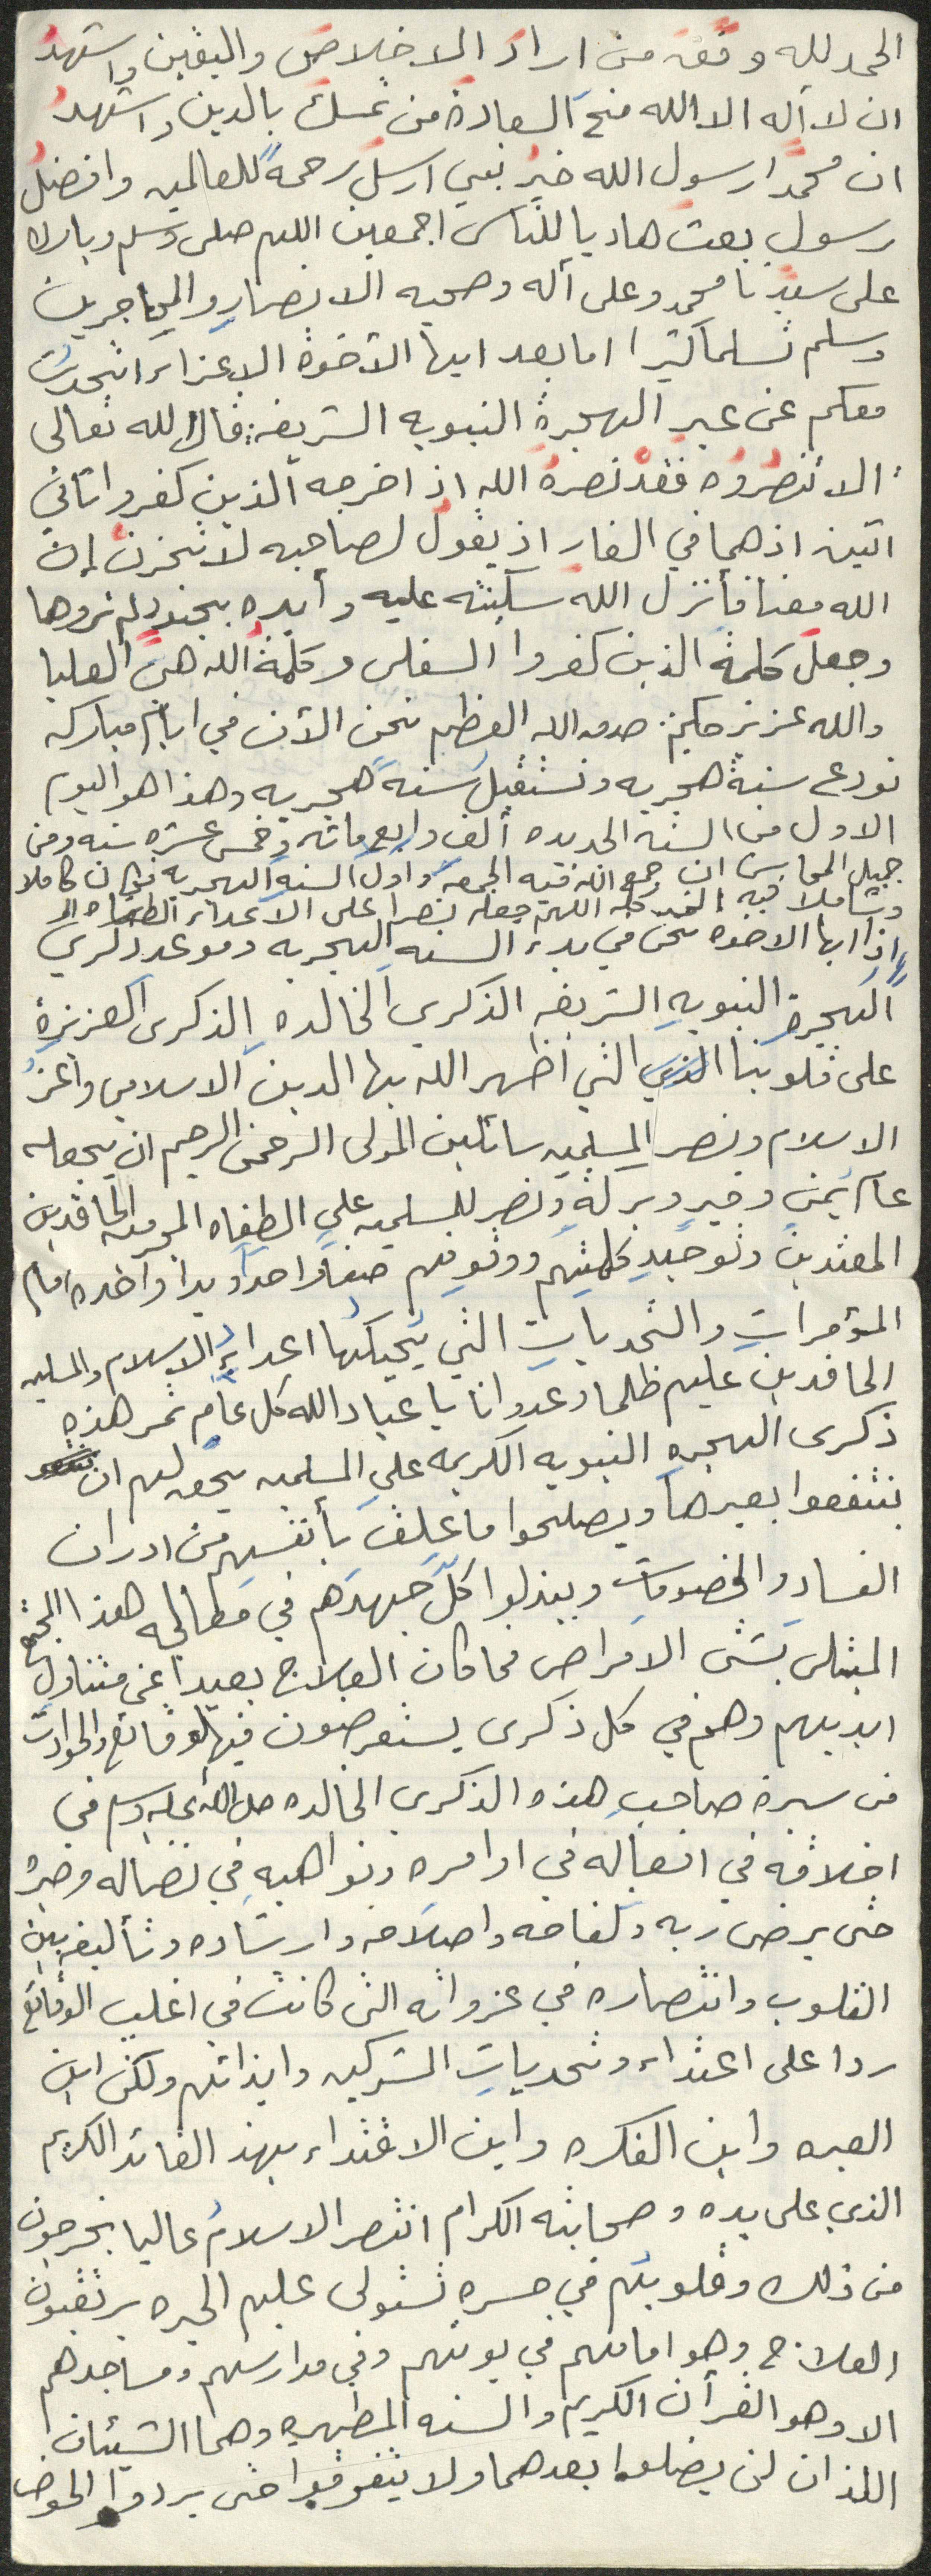 الحمد لله وفق من اراد الاخلاص واليقين واشهد
ان لا أله الا الله منح السعادة من تمسك بالدين واشهد
ان محمدا رسول الله خير نبي ارسل رحمة للعالمين وافضل
رسول بعث هاديا للناس اجمعين اللهم صلى وسلم وبارك
على سيدنا محمد وعلى أله وصحبه الانصار والمهاجرين
وسلم تسلما كثيرا اما بعد ايها الأخوة الاعزاء اتحدث
معكم عن عبر الهجرة النبويه الشريفه: قال الله تعالى
: الا تنصروه فقد نصره الله اذ اخرجه الذين كفروا ثاني
اثنين اذ هما في الغار اذ يقول لصاحبه لا تحزن إن
الله معنا فأنزل الله سكينته عليه وأيده بجنود لم تروها
وجعل كلمة الذين كفروا السفلى وكلمة الله هي العليا
والله عزيز حكيم: صدق الله العظيم نحن الأن في ايام مباركه
نودع سنة هجريه ونستقبل سنة هجريه وهذا هو اليوم
الاول من السنه الجديده ألف واربع مائه وخمس عشره سنه ومن
جميل المحاسن ان جمع الله فيه الجمعه واول السنه الهجريه فكان كاملا
وشاملا فيه الخير كله اللهم جعله نصرا على الاعداء الطغاه
إذا ايها الاخوه نحن في بدء السنه الهجريه وموعد ذكرى
الهجرة النبويه الشريفه الذكرى الخالده الذكرى العزيزة
على قلوبنا التي أظهر الله بها الدين الاسلامي وأعز
الاسلام ونصر المسلمين سائلين المولى الرحمن الرحيم ان يجعله
عام يمن وخير وبركة ونصر للمسلمين على الطغاه المجرمين الحاقدين
المعتدين وتوحيد كلمتهم ووقوفهم صفا واحدا ويدا واحده امام
المؤمرات والتحديات التي يحيكها اعداء الاسلام والمسلمين
الحاقدين عليهم ظلما وعدوانا يا عباد الله كل عام تمر هذه
ذكرى الهجره النبويه الكريمه على المسلمين يحق لهم ان
ينتفعوا بعبرها ويصلحوا ما علق بأنفسهم من ادران
الفساد والخصومات ويبذلوا كل جهدهم في معالجه هذا المجتمع
المبتلى بشتى الامراض فما كان العلاج بعيدا عن متناول
ايديهم وهم في كل ذكرى يستعرضون فيها الوقائع والحوادث
من سيرة صاحب هذه الذكرى الخالده صلى الله عليه وسلم في
اخلاقه في افعاله في اوامره ونواهيه في نضاله وصبره
حتى يرضى ربه وكفاحه واصلاحه وارشاده وتأليفه بين
القلوب وانتصاره في غزواته التي كانت في اغلب الوقائع
ردا على اعتداء وتحديات المشركين وايذائهم ولكن اين
العبره واين الفكره واين الاقتداء بهذ القائد الكريم
الذي على يده وصحابته الكرام انتصر الاسلام عاليا يخرجون
من ذلك وقلوبهم في حسره تستولى عليهم الحيره يرتقبون
العلاج وهو امامهم في بيوتهم وفي مدارسهم ومساجدهم
الا وهو القرأن الكريم والسنه المطهره وهما الشيئان
اللذان لن يضلوا بعدهما ولا يتفرقوا حتى يردوا الحوض